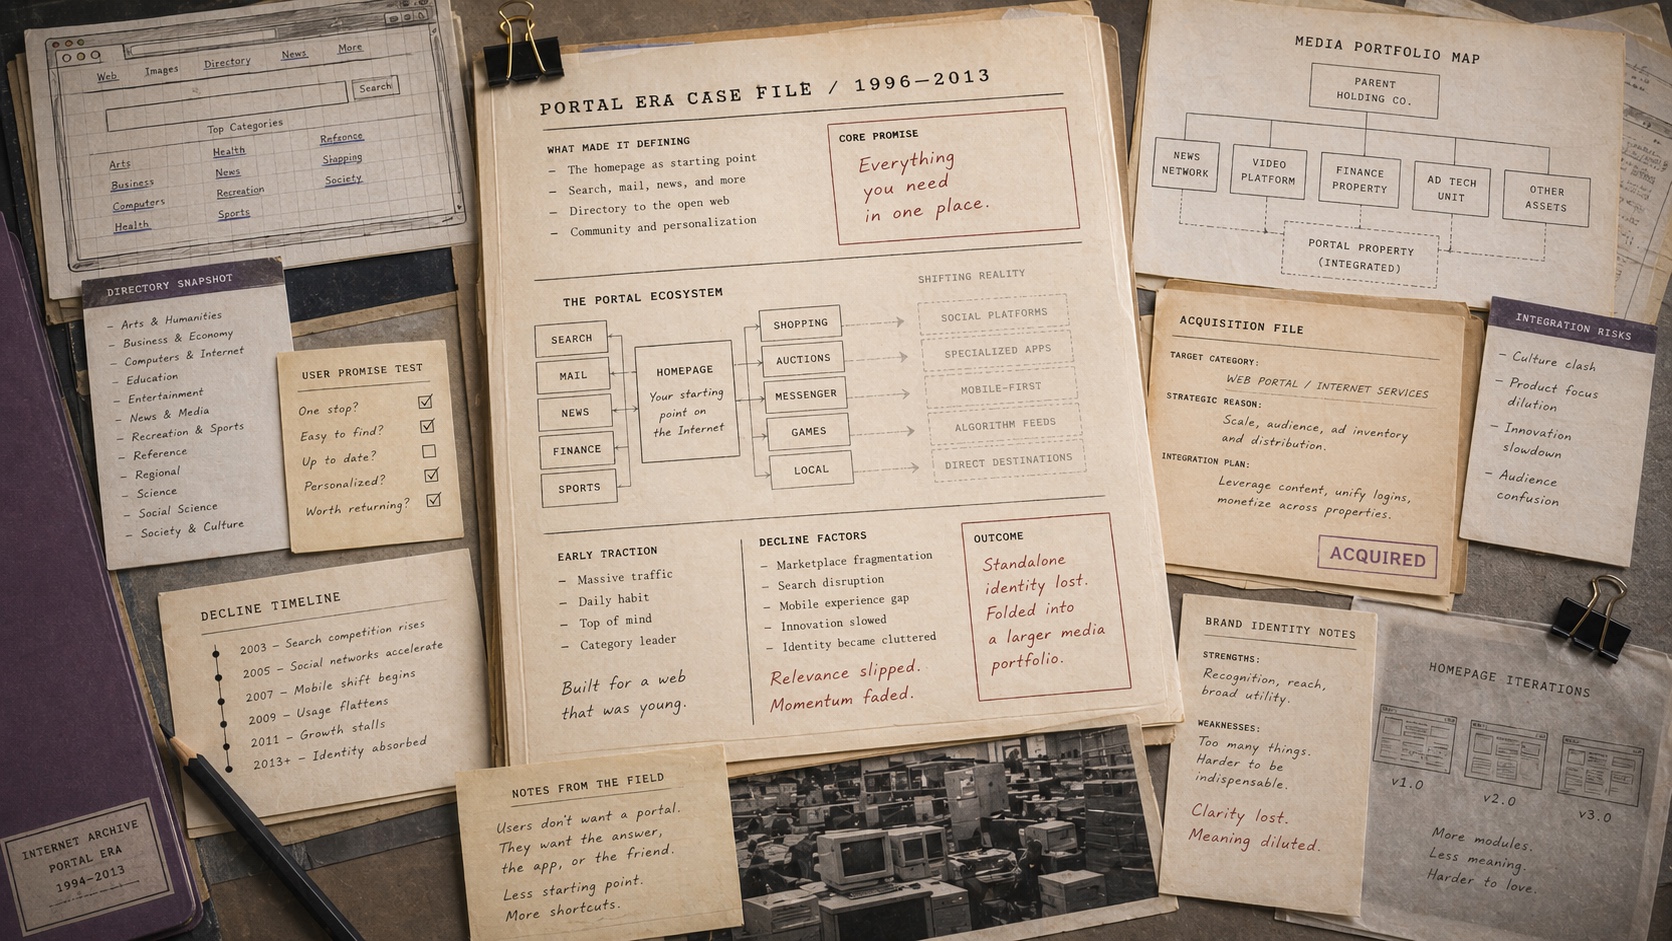 Web
Images
Directory
News
More
Search
Top Categories
Arts
Business
Computers
Health
Health
News
Recreation
Sports
Refsonce
Shapping
Society
DIRECTORY SNAPSHOT
– Arts & Humanities
– Business & Economy
– Computers & Internet
– Education
– Entertainment
– News & Media
– Recreation & Sports
– Reference
– Regional
– Science
– Social Science
– Society & Culture
USER PROMISE TEST
One stop?
Easy to find?
Up to date?
Personalized?
Worth returning?
DECLINE TIMELINE
2003 – Search competition rises
2005 – Social networks accelerate
2007 – Mobile shift begins
2009 – Usage flattens
2011 – Growth stalls
2013+ – Identity absorbed
INTERNET ARCHIVE
PORTAL ERA
1994–2013
PORTAL ERA CASE FILE / 1996–2013
WHAT MADE IT DEFINING
– The homepage as starting point
– Search, mail, news, and more
– Directory to the open web
– Community and personalization
CORE PROMISE
Everything
you need
in one place.
THE PORTAL ECOSYSTEM
SHIFTING REALITY
SEARCH
MAIL
NEWS
FINANCE
SPORTS
HOMEPAGE
Your starting
point on
the Internet
SHOPPING
AUCTIONS
MESSENGER
GAMES
LOCAL
SOCIAL PLATFORMS
SPECIALIZED APPS
MOBILE-FIRST
ALGORITHM FEEDS
DIRECT DESTINATIONS
EARLY TRACTION
– Massive traffic
– Daily habit
– Top of mind
– Category leader
Built for a web
that was young.
DECLINE FACTORS
– Marketplace fragmentation
– Search disruption
– Mobile experience gap
– Innovation slowed
– Identity became cluttered
Relevance slipped.
Momentum faded.
OUTCOME
Standalone
identity lost.
Folded into
a larger media
portfolio.
NOTES FROM THE FIELD
Users don't want a portal.
They want the answer,
the app, or the friend.
Less starting point.
More shortcuts.
MEDIA PORTFOLIO MAP
PARENT
HOLDING CO.
NEWS
NETWORK
VIDEO
PLATFORM
FINANCE
PROPERTY
AD TECH
UNIT
OTHER
ASSETS
PORTAL PROPERTY
(INTEGRATED)
ACQUISITION FILE
TARGET CATEGORY:
WEB PORTAL / INTERNET SERVICES
STRATEGIC REASON:
Scale, audience, ad inventory
and distribution.
INTEGRATION PLAN:
Leverage content, unify logins,
monetize across properties.
ACQUIRED
INTEGRATION RISKS
– Culture clash
– Product focus
dilution
– Innovation
slowdown
– Audience
confusion
BRAND IDENTITY NOTES
STRENGTHS:
Recognition, reach,
broad utility.
WEAKNESSES:
Too many things.
Harder to be
indispensable.
Clarity lost.
Meaning diluted.
HOMEPAGE ITERATIONS
v1.0
v2.0
v3.0
More modules.
Less meaning.
Harder to love.